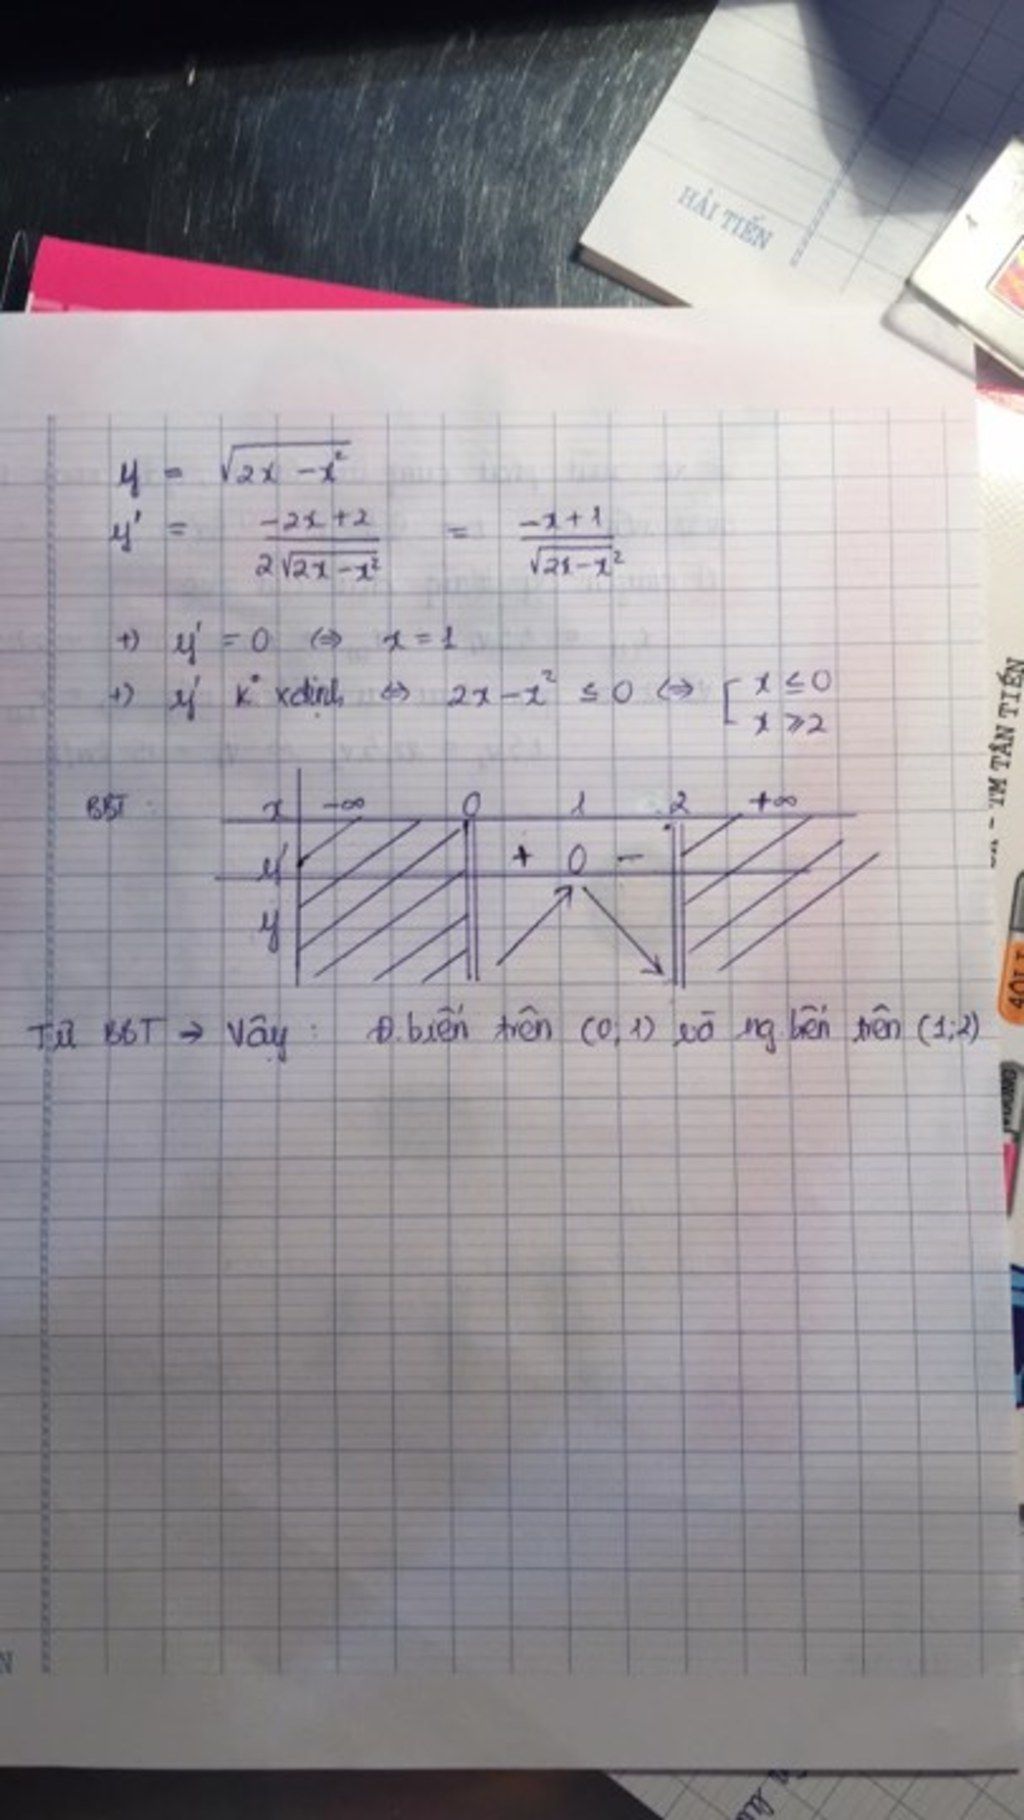 HẢI TIẾN
y = √(2x - x²)
y' = (-2x + 2)/(2√(2x - x²)) = (-x + 1)/√(2x - x²)
+) y' = 0 ⇔ x = 1
+) y' k° xđịnh ⇔ 2x - x² ≤ 0 ⇔ [ x ≤ 0
x ≥ 2
BBT : x -∞ 0 1 2 +∞
y' + 0 -
y
Từ BBT → Vậy : Đ.biến trên (0;1) và ng.bến trên (1;2)
TM TÂN TIẾN